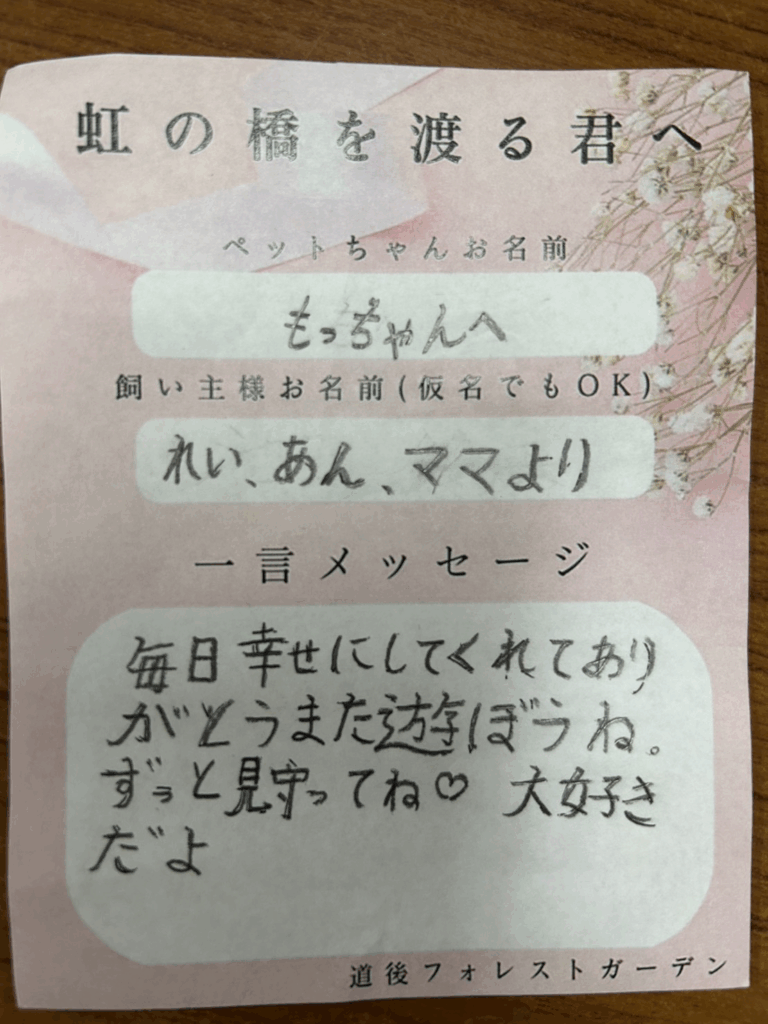 虹の橋を渡る君へ
ペットちゃんお名前
もっちゃんへ
飼い主様お名前(仮名でもOK)
れい、あん、ママより
一言メッセージ
毎日幸せにしてくれてあり
がとうまた遊ぼうね。
ずっと見守ってね♡ 大好き
だよ
道後フォレストガーデン